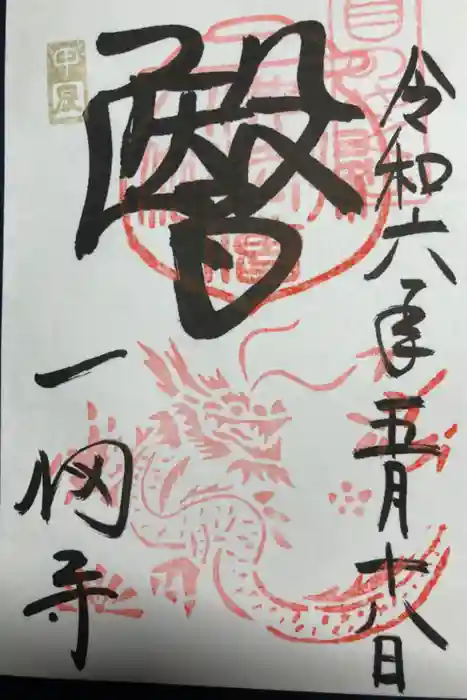 令和六年五月十八日
醫
甲辰
一畑寺